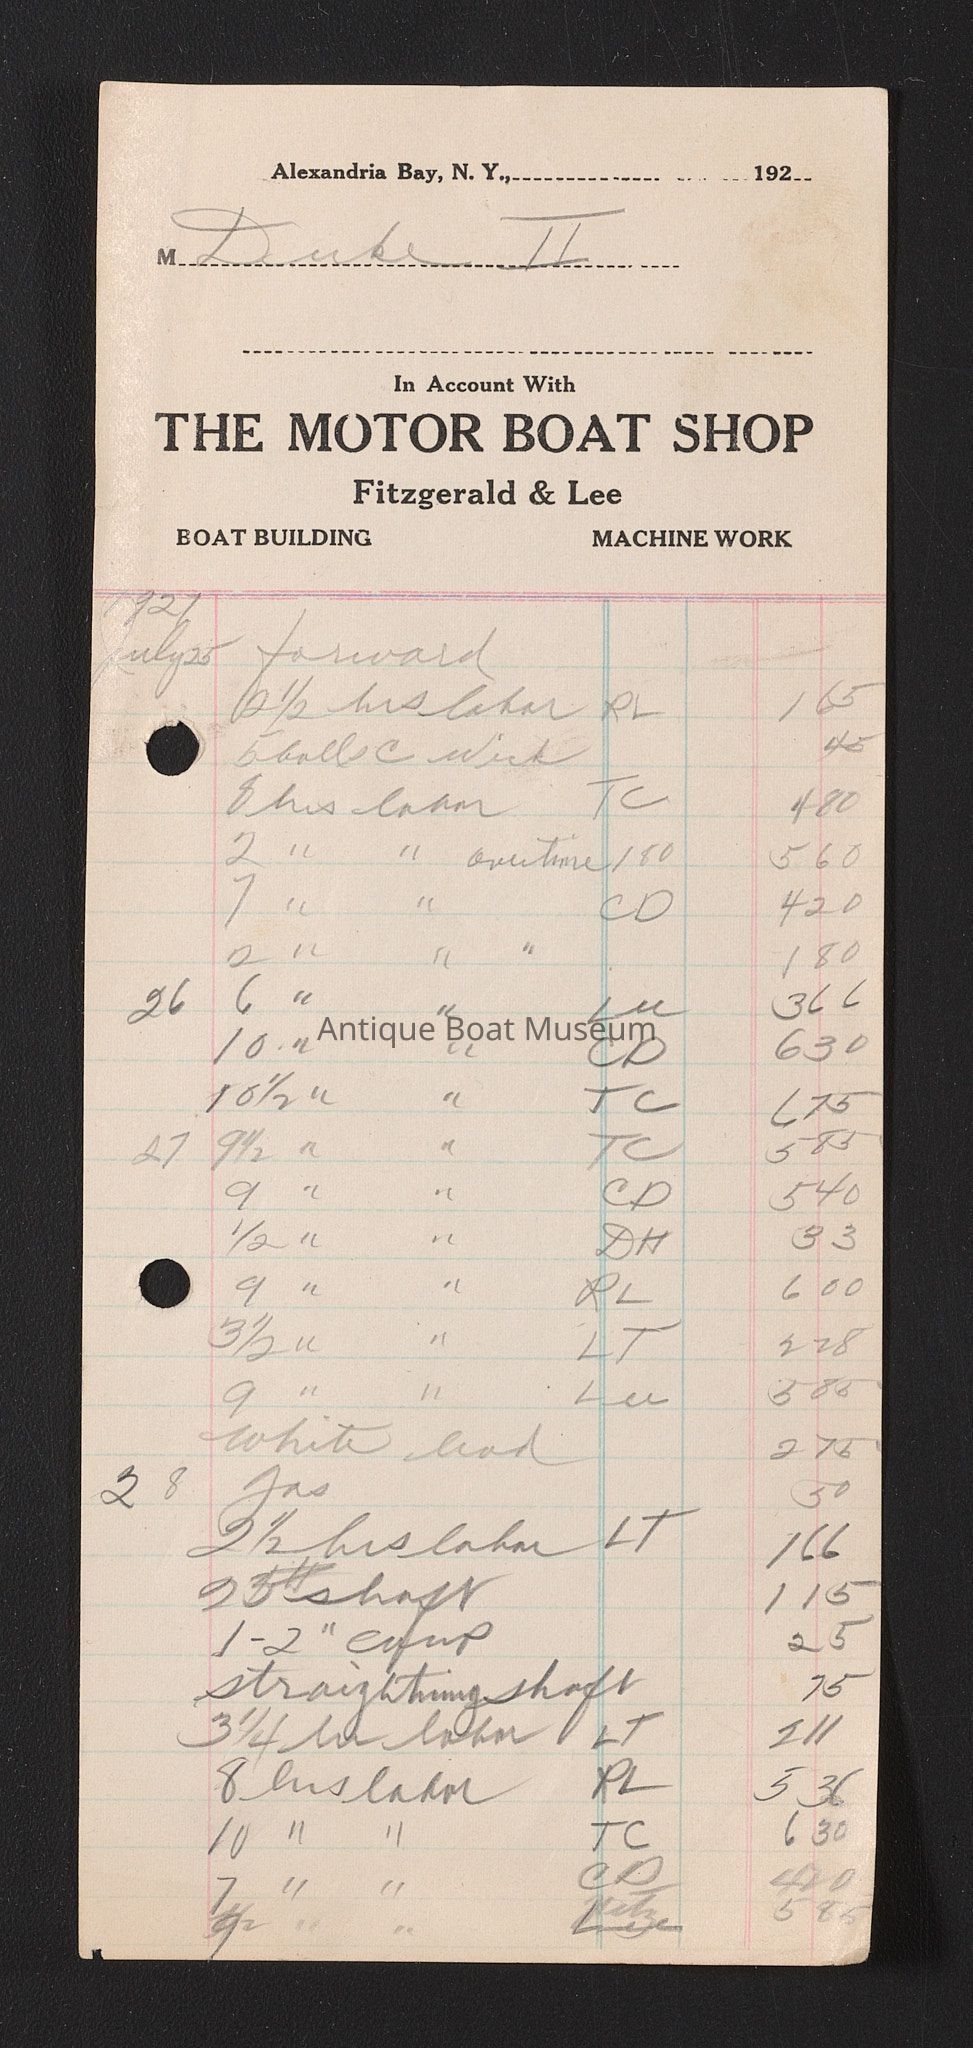 Alexandria Bay, N. Y., 192
M Duke II
In Account With
THE MOTOR BOAT SHOP
Fitzgerald & Lee
BOAT BUILDING MACHINE WORK
1927
July 25 forward
2 1/2 hrs labor RL 1 65
5 balls C Wick 45
8 hrs labor TC 4 80
2 " " overtime 180 5 60
7 " " CD 4 20
2 " " " 1 80
26 6 " " Lee 3 66
Antique Boat Museum
10 " " CD 6 30
10 1/2 " " TC 6 75
27 9 1/2 " " TC 5 85
9 " " CD 5 40
1/2 " " DH 33
9 " " RL 6 00
3 1/2 " " LT 2 28
9 " " Lee 5 85
White lead 2 75
28 Gas 50
2 1/2 hrs labor LT 1 66
shaft 1 15
1-2" 25
straightning shaft 75
3 1/4 hr labor LT 2 11
8 hrs labor RL 5 36
10 " " TC 6 30
7 " " CD 4 20
" " Lee 5 85